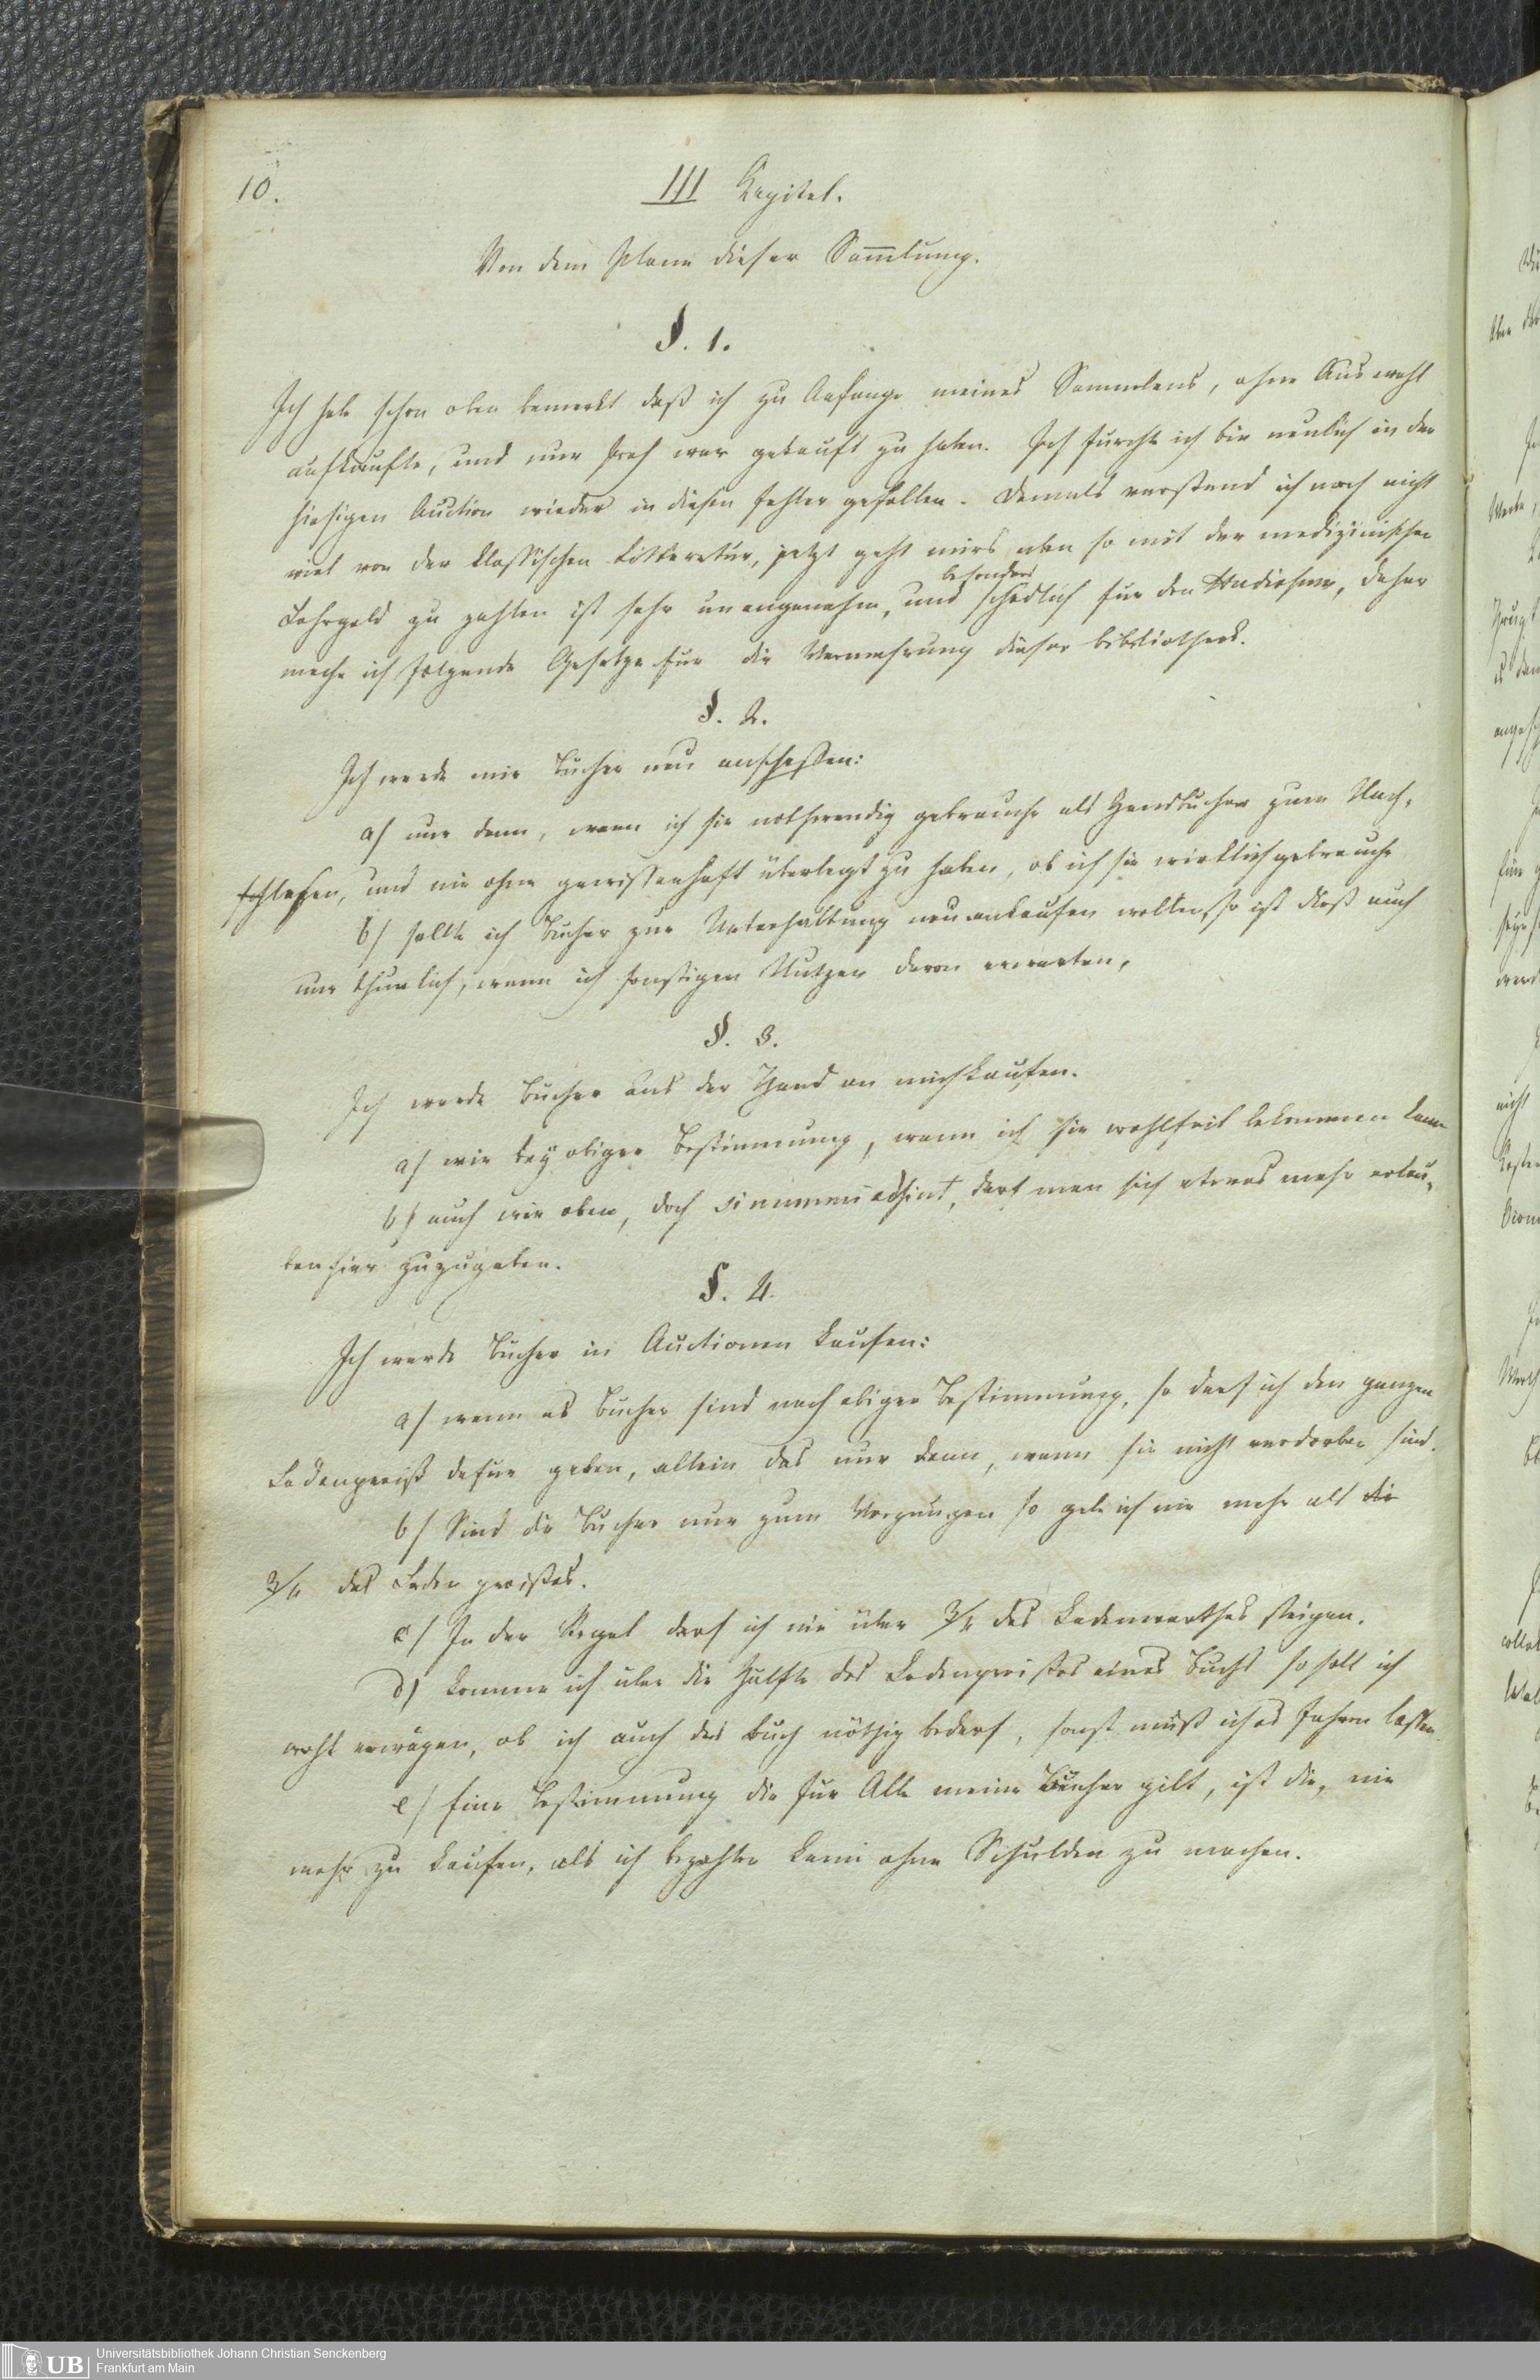 10.
III Kapitel.
Von dem Plane dieser Sam̅lung.
§. 1.
Ich habe schon oben bemerkt daß ich zu Anfange meines Sammelns, ohne Auswahl
aufkaufte, und nur froh war gekauft zu haben. Ich furchte ich bin neulich in der
hiesigen Auction wieder in diesen Fehler gefallen. Damals verstand ich noch nicht
viel von der klassischen Litteratur, jetzt geht mirs eben so mit der medizinischen
besonders
Lehrgeld zu zahlen ist sehr unangenehm, und schädlich fur den Studiosum, daher
mache ich folgende Gesetze fur die Vermehrung dieser bibliotheck.
§. 2.
Ich werde mir Bucher neu anschaffen:
a) nur dann, wenn ich sie nothwendig gebrauche als Handbucher zum Nach-
schlagen, und nie ohne gewissenhaft überlegt zu haben, ob ich sie wirklich gebrauche
b) sollte ich Bucher zur Unterhaltung neu ankaufen wollen, so ist dieß auch
nur thunlich, wenn ich sonstigen Nutzen davon erwarten,
§. 3.
Ich werde Bucher aus der Hand an mich kaufen.
a) wie bey obiger Bestimmung, wenn ich sie wohlfeil bekommen kann
b) auch wie oben, doch si nummi adsint, darf man sich etwas mehr erlau-
ben hier zuzugeben.
§. 4.
Ich werde Bucher in Auctionen kaufen:
a) wenn es Bucher sind nach obiger Bestimmung, so darf ich den ganzen
Ladenpreiß dafur geben, allein das nur dann, wenn sie nicht verdorben sind.
b) Sind die Bucher nur zum Vergnugen so gebe ich nie mehr als die
3/4 des Laden preißes.
c) In der Regel darf ich nie über 3/4 des Ladenwerthes steigen.
d) komme ich uber die Hälfte des Ladenpreißes eines Buchs so soll ich
wohl erwägen, ob ich auch das Buch nöthig bedarf, sonst muß ich es fahren lassen.
e) Eine Bestimmung die fur Alle meine Bücher gilt, ist die, nie
mehr zu kaufen, als ich bezahlen kann ohne Schulden zu machen.
UB
Universitätsbibliothek Johann Christian Senckenberg
Frankfurt am Main